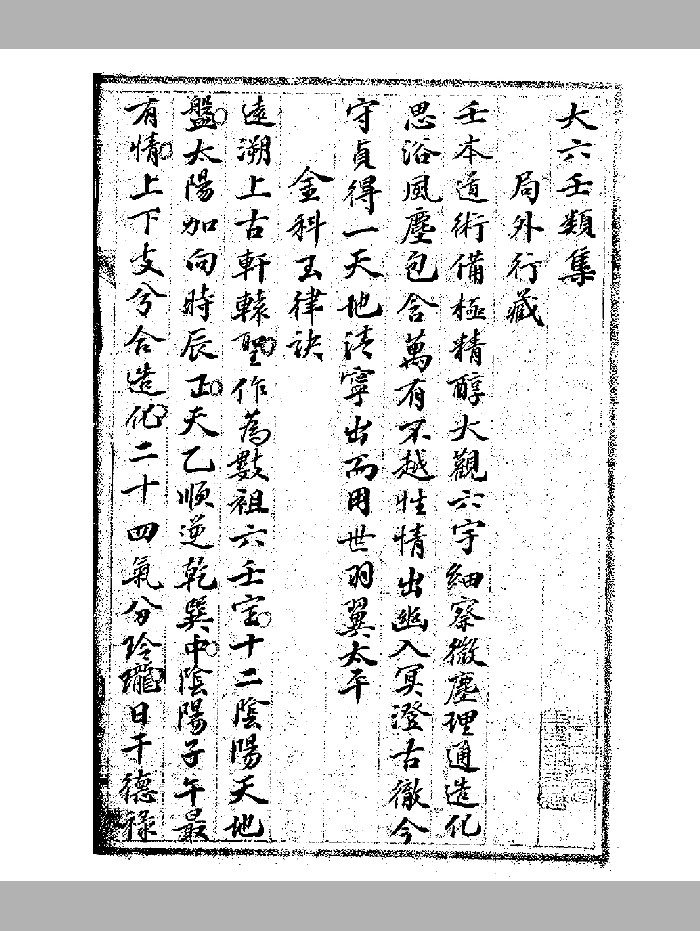 大六壬類集
局外行藏
壬本道術備極精醇大觀六宇細察微塵理通造化
思浴風塵包含萬有不越性情出幽入冥澄古徹今
守貞得一天地清寧出而用世羽翼太平
金科玉律訣
遠溯上古軒轅聖作為數祖六壬定十二陰陽天地
盤太陽加向時辰正天乙順逆乾巽中陰陽子午最
有情上下支兮合造化二十四氣分玲瓏日干德祿